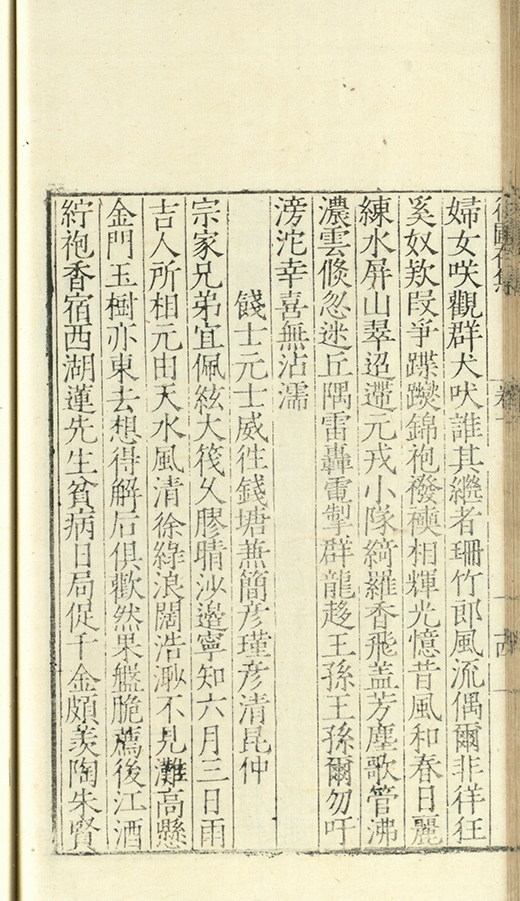 婦女咲觀群犬吠誰其繼者珊竹郎風流偶爾非徉狂
奚奴欵段爭蹀躞錦袍襏襫相輝光憶昔風和春日麗
練水屏山翠迢遰元戎小隊綺羅香飛盖芳塵歌管沸
濃雲倐忽迷丘隅雷轟電掣群龍趍王孫王孫爾勿吁
滂沱幸喜無沾濡
餞士元士威徃錢塘蕪簡彦瑾彦清昆仲
宗家兄弟宜佩絃大筏乆膠晴沙邉寧知六月三日雨
吉人所相元由天水風清徐綠浪闊浩渺不見灘高懸
金門玉樹亦東去想得觧后俱歡然果艦脆薦後江酒
紵袍香宿西湖蓮先生貧病日局促千金頗羡陶朱賢